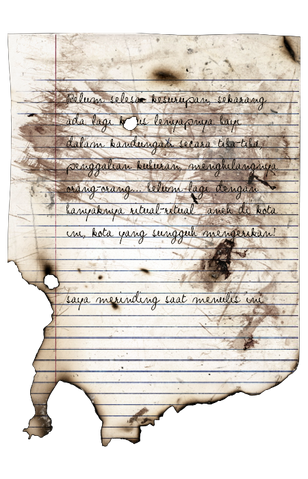 Belum selesai kesurupan sekarang
ada lagi lenyapnya bayi
dalam kandungan secara tiba-tiba,
penggalian kuburan, menghilangnya
orang-orang... belum lagi dengan
banyaknya ritual-ritual aneh di kota
ini, kota yang sungguh mengerikan!
saya merinding saat menulis ini